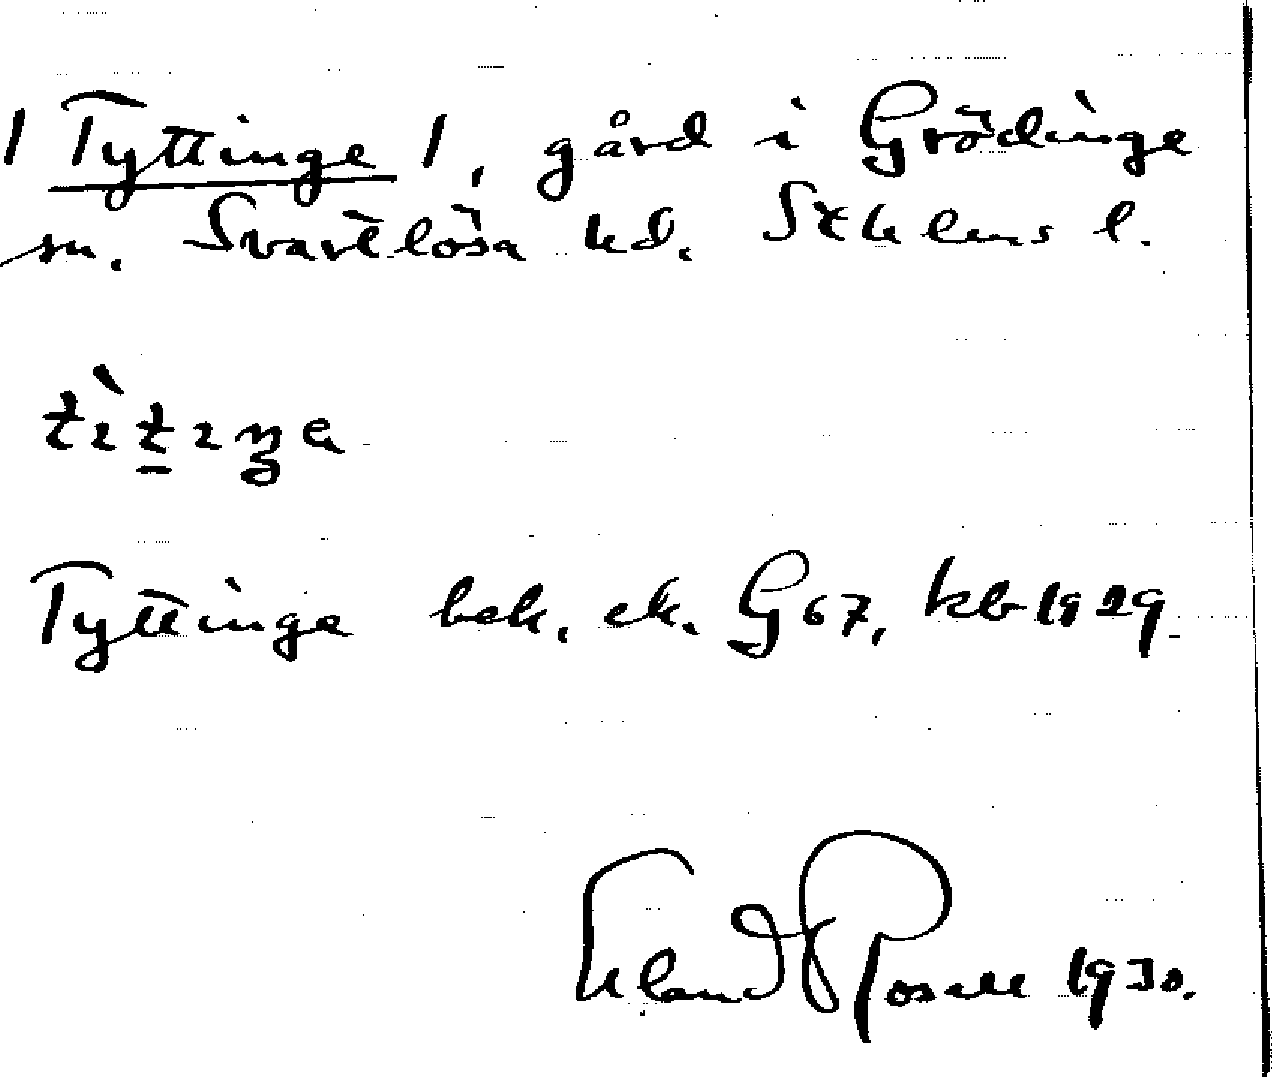 / Tyttinge /, gård i Grödinge
sn. Svartlösa hd. Sthlms l.
Tyttinge bek. ek. G 67, kb 1929
Erland Rosell 1930.